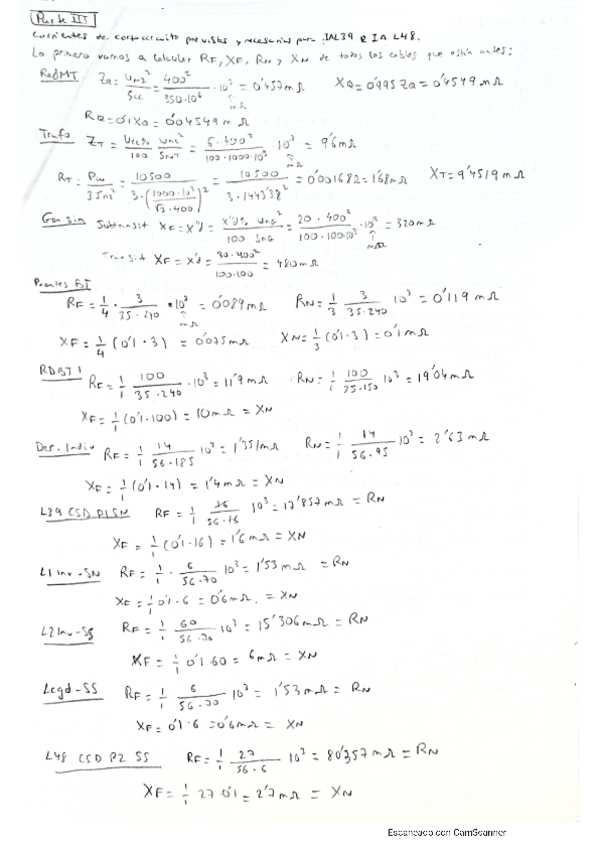 Parte III
Corrientes de cortocircuito previstas y necesarias para IAL39 e IA L48.
Lo primero vamos a calcular RF, XF, RN y XN de todos los cables que están antes:
Red MT ZQ = Un2² / Scc = 400² / 350·10⁶ · 10³ = 0'457 mΩ XQ = 0'995 ZQ = 0'4549 mΩ
mΩ
RQ = 0'1 XQ = 0'04549 mΩ
Trafo ZT = Ucc% / 100 Un2² / SnT = 6·400² / 100·1000·10³ 10³ = 9'6 mΩ
mΩ
RT = Pcu / 3 In2² = 10500 / 3·(1000·10³ / √3·400)² = 10500 / 3·1443'38² = 0'001682 = 1'68 mΩ XT = 9'4519 mΩ
Gen sin Subtransit XF = X''d = X''d% UnG² / 100 SnG = 20·400² / 100·100·10³ · 10³ = 320 mΩ
mΩ
Transit XF = X'd = 30·400² / 100·100 = 480 mΩ
Puentes BT
RF = 1/4 · 3 / 35·240 · 10³ = 0'089 mΩ RN = 1/3 3 / 35·240 10³ = 0'119 mΩ
mΩ
XF = 1/4 (0'1·3) = 0'075 mΩ XN = 1/3 (0'1·3) = 0'1 mΩ
RDBT 1 RF = 1/1 100 / 35·240 · 10³ = 11'9 mΩ RN = 1/1 100 / 35·150 10³ = 19'04 mΩ
XF = 1/1 (0'1·100) = 10 mΩ = XN
Der. Indiv RF = 1/1 14 / 56·185 10³ = 1'351 mΩ RN = 1/1 14 / 56·95 10³ = 2'63 mΩ
XF = 1/1 (0'1·14) = 1'4 mΩ = XN
L39 CSD P1 SN RF = 1/1 16 / 56·16 10³ = 17'857 mΩ = RN
XF = 1/1 (0'1·16) = 1'6 mΩ = XN
L1 Inv-SN RF = 1/1 · 6 / 56·70 10³ = 1'53 mΩ = RN
XF = 1/1 0'1·6 = 0'6 mΩ. = XN
L2 Inv-SS RF = 1/1 60 / 56·70 10³ = 15'306 mΩ = RN
XF = 1/1 0'1·60 = 6 mΩ = XN
Lcgd-SS RF = 1/1 6 / 56·70 10³ = 1'53 mΩ = RN
XF = 0'1·6 = 0'6 mΩ = XN
L48 CSD P2 SS RF = 1/1 27 / 56·6 10³ = 80'357 mΩ = RN
XF = 1/1 27·0'1 = 2'7 mΩ = XN
Escaneado con CamScanner